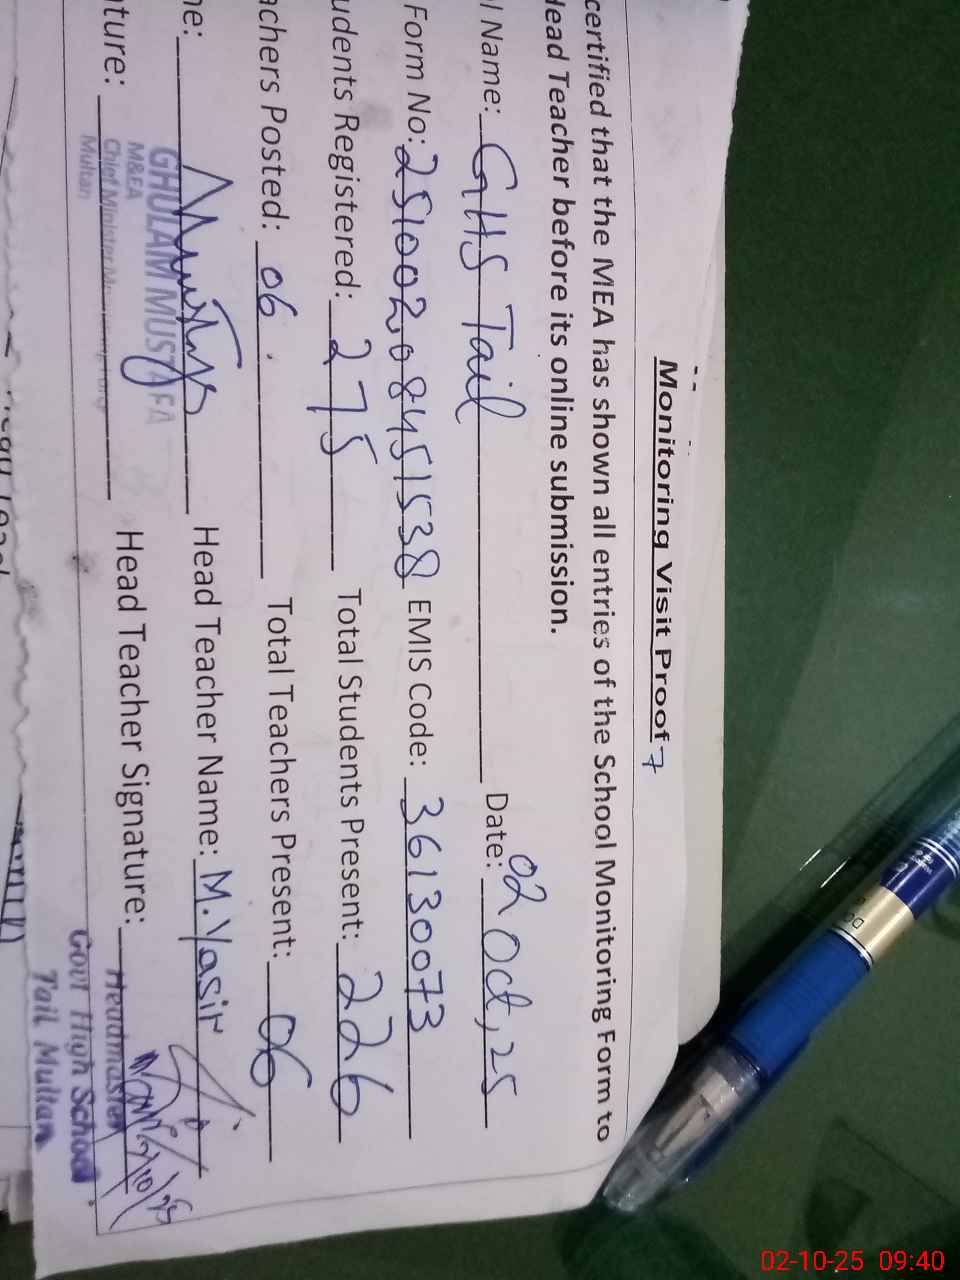 Monitoring Visit Proof 7
certified that the MEA has shown all entries of the School Monitoring Form to
Head Teacher before its online submission.
l Name: GHS Tail Date: 02 Oct, 25
Form No: 25100208451538 EMIS Code: 36130073
udents Registered: 275 Total Students Present: 226
achers Posted: 06 Total Teachers Present: 06
ne: Head Teacher Name: M. Yasir
GHULAM MUSTAFA
M&EA
ature: Head Teacher Signature:
Chief Minister
Multan
Headmaster
Govt High School
Tail Multan
02-10-25 09:40